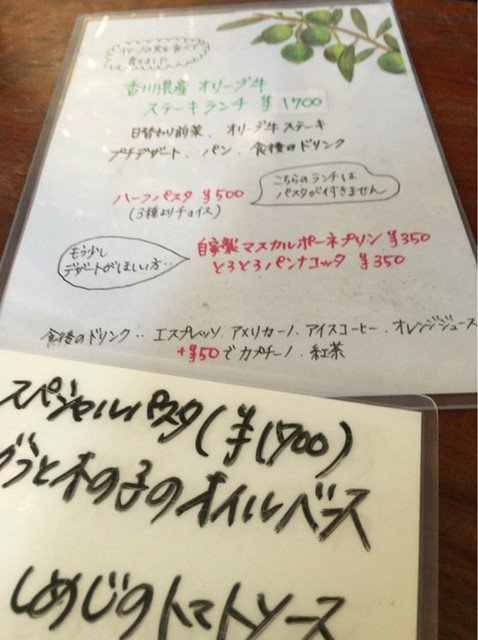 オリーブの実を食べて
育ちました
香川県産 オリーブ牛
ステーキランチ ¥1700
日替わり前菜、オリーブ牛ステーキ
プチデザート、パン、食後のドリンク
こちらのランチは
パスタが付きません
ハーフパスタ ¥500
(3種よりチョイス)
もう少し
デザートがほしい方・・
自家製マスカルポーネプリン ¥350
とろとろパンナコッタ ¥350
食後のドリンク・・ エスプレッソ、アメリカーノ、アイスコーヒー、オレンジジュース
+¥50でカプチーノ、紅茶
スペシャルパスタ(¥1700)
グラと木の子のオイルベース
しめじのトマトソース